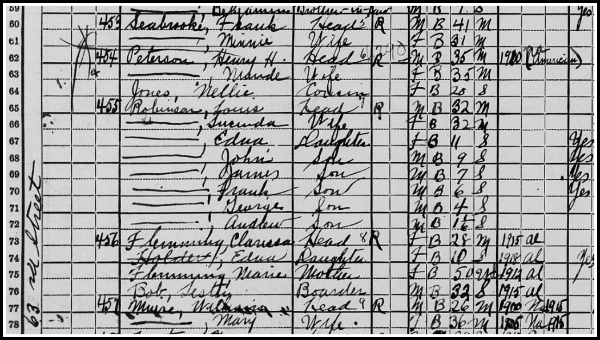 59 Brother-in-law M B S
60 453 Seabrooke, Frank Head 5 R M B 41 M Yes
61 ——, Minnie Wife F B 31 M
62 454 Peterson, Henry H. Head 6 R M B 35 M 1920 (American)
63 ——, Maude Wife F B 35 M
64 Jones, Nellie Cousin F B 20 S
65 455 Robinson, Louis Head 7 R M B 32 M
66 ——, Lucinda Wife F B 32 M
67 ——, Edna Daughter F B 11 S Yes
68 ——, John Son M B 9 S Yes
69 ——, James Son M B 7 S Yes
70 ——, Frank Son M B 6 S Yes
71 ——, George Son M B 4 S
72 ——, Andrew Son M B S
73 456 Flemming, Clarissa Head 8 R F B 28 M 1915 al
74 Edna Daughter F B 10 S al Yes
75 Flemming, Marie Mother F B 50 1912 al
76 Bob, Boarder M B 32 S 1915 al
77 457 Head 9 R M B 26 M 1900 Na 1915
78 ——, Mary Wife F B 36 M 1905 Na 1915
63 rd Street